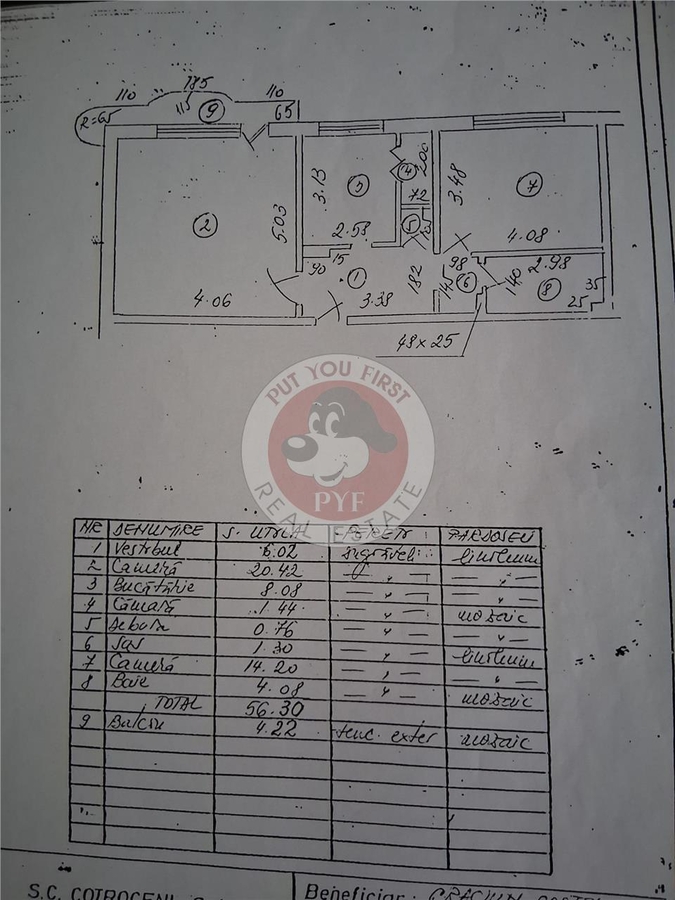 110 185 110
R=65 115 9 65
2 5.03 4.06
3.13 3 2.58
4 200 72
5
3.48 7 4.08
90 15 1 182 3.38
98 142 6
140 2.98 8 35 25
48 x 25
PUT YOU FIRST
PYF
REAL ESTATE
NR DENUMIRE S. UTILA PERETI PARDOSELI
1 Vestibul 6.02 zugraveli linoleum
2 Cameră 20.42 — " — — " —
3 Bucătărie 8.08 — " — — " —
4 Cămară 1.44 — " — mozaic
5 Debara 0.76 — " — — " —
6 Sas 1.30 — " — linoleum
7 Cameră 14.20 — " — — " —
8 Baie 4.08 — " — mozaic
TOTAL 56.30
9 Balcon 4.22 tenc. exter mozaic
S.C. COTROCENI
Beneficiar: CRACIUN